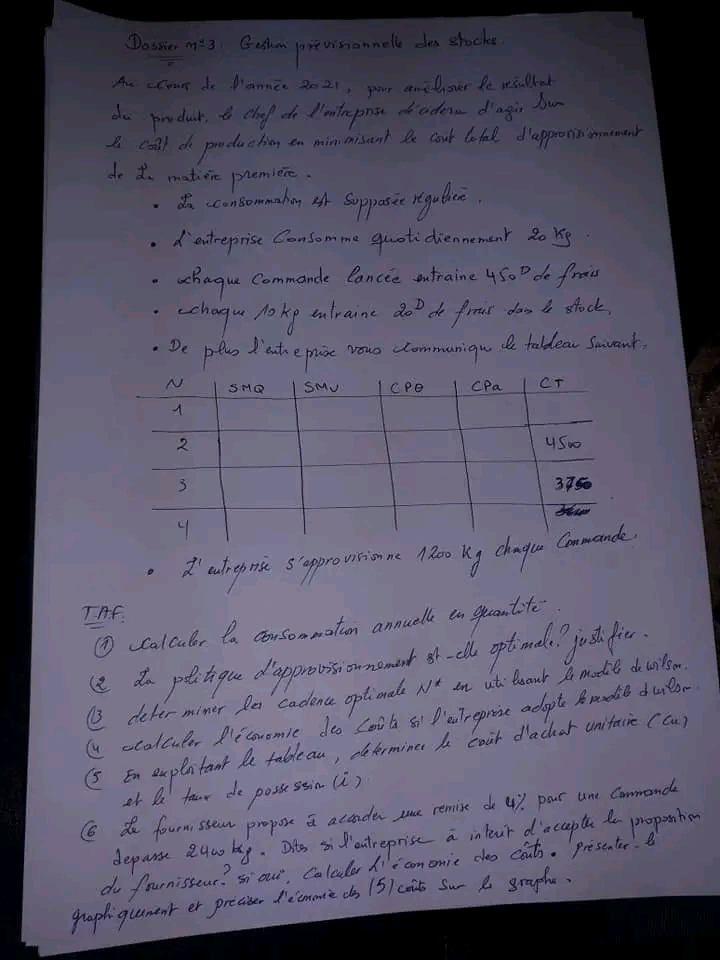 Dossier n°3: Gestion prévisionnelle des stocks.
Au cours de l'année 2021, pour améliorer le résultat
du produit, le chef de l'entreprise décidera d'agir sur
le coût de production en minimisant le coût total d'approvisionnement
de la matière première.
• La consommation est supposée régulière.
• L'entreprise consomme quotidiennement 20 kg.
• chaque commande lancée entraine 450D de frais
• chaque 10kg entraine 20D de frais dans le stock.
• De plus l'entreprise vous communique le tableau suivant:
N SMQ SMV CPθ CPa CT
1
2 4500
3 3750
4
• L'entreprise s'approvisionne 1200 kg chaque commande.
T.A.F:
(1) calculer la consommation annuelle en quantité.
(2 La politique d'approvisionnement est-elle optimale? justifier.
(3 determiner les cadence optimale N* en utilisant le modèle de wilson.
(4 calculer l'économie des coûts si l'entreprise adopte le modèle d wilson.
(5 En exploitant le tableau, déterminer le coût d'achat unitaire (cu)
et le taux de possession (i)
(6 Le fournisseur propose à accorder une remise de 4% pour une commande
depasse 2400 kg. Dites si l'entreprise à interit d'accepter la proposition
du fournisseur? si oui, calculer l'économie des coûts. présenter le
graphiquement et préciser l'économie des (5) coûts sur le graphe.